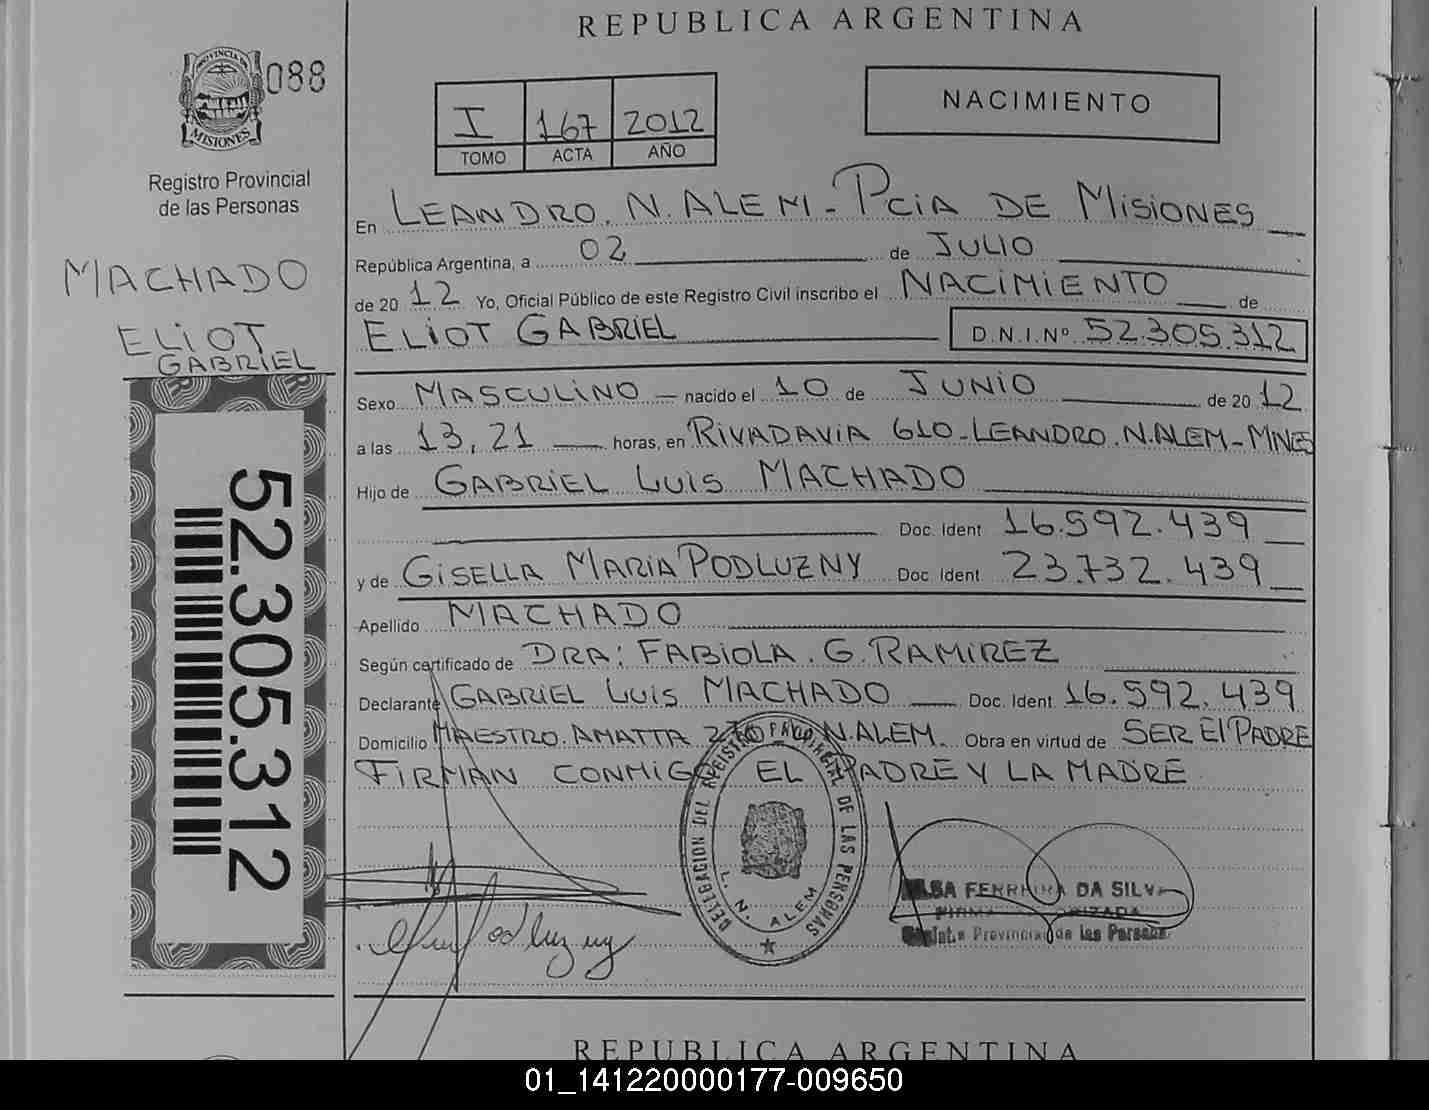 REPUBLICA ARGENTINA
PROVINCIA DE
MISIONES
088
Registro Provincial
de las Personas
MACHADO
ELIOT
GABRIEL
52.305.312
I 167 2012
TOMO ACTA AÑO
NACIMIENTO
En LEANDRO. N. ALEM - PCIA DE MISIONES
República Argentina, a 02 de JULIO
de 2012 Yo, Oficial Público de este Registro Civil inscribo el NACIMIENTO de
ELIOT GABRIEL D.N.I.Nº 52.305.312
Sexo MASCULINO nacido el 10 de JUNIO de 2012
a las 13,21 horas, en RIVADAVIA 610 - LEANDRO. N. ALEM - MNES
Hijo de GABRIEL LUIS MACHADO
Doc. Ident 16.592.439
y de GISELLA MARIA PODLUZNY Doc. Ident 23.732.439
Apellido MACHADO
Según certificado de DRA: FABIOLA. G. RAMIREZ
Declarante GABRIEL LUIS MACHADO Doc. Ident 16.592.439
Domicilio MAESTRO. AMATTA N. ALEM. Obra en virtud de SER El PADRE
FIRMAN CONMIGO EL PADRE Y LA MADRE
DELEGACION DEL REGISTRO PROVINCIAL DE LAS PERSONAS
L. N. ALEM
Podluzny
FERREIRA DA SILVA
Provincial de las Personas
REPUBLICA ARGENTINA
01_141220000177-009650